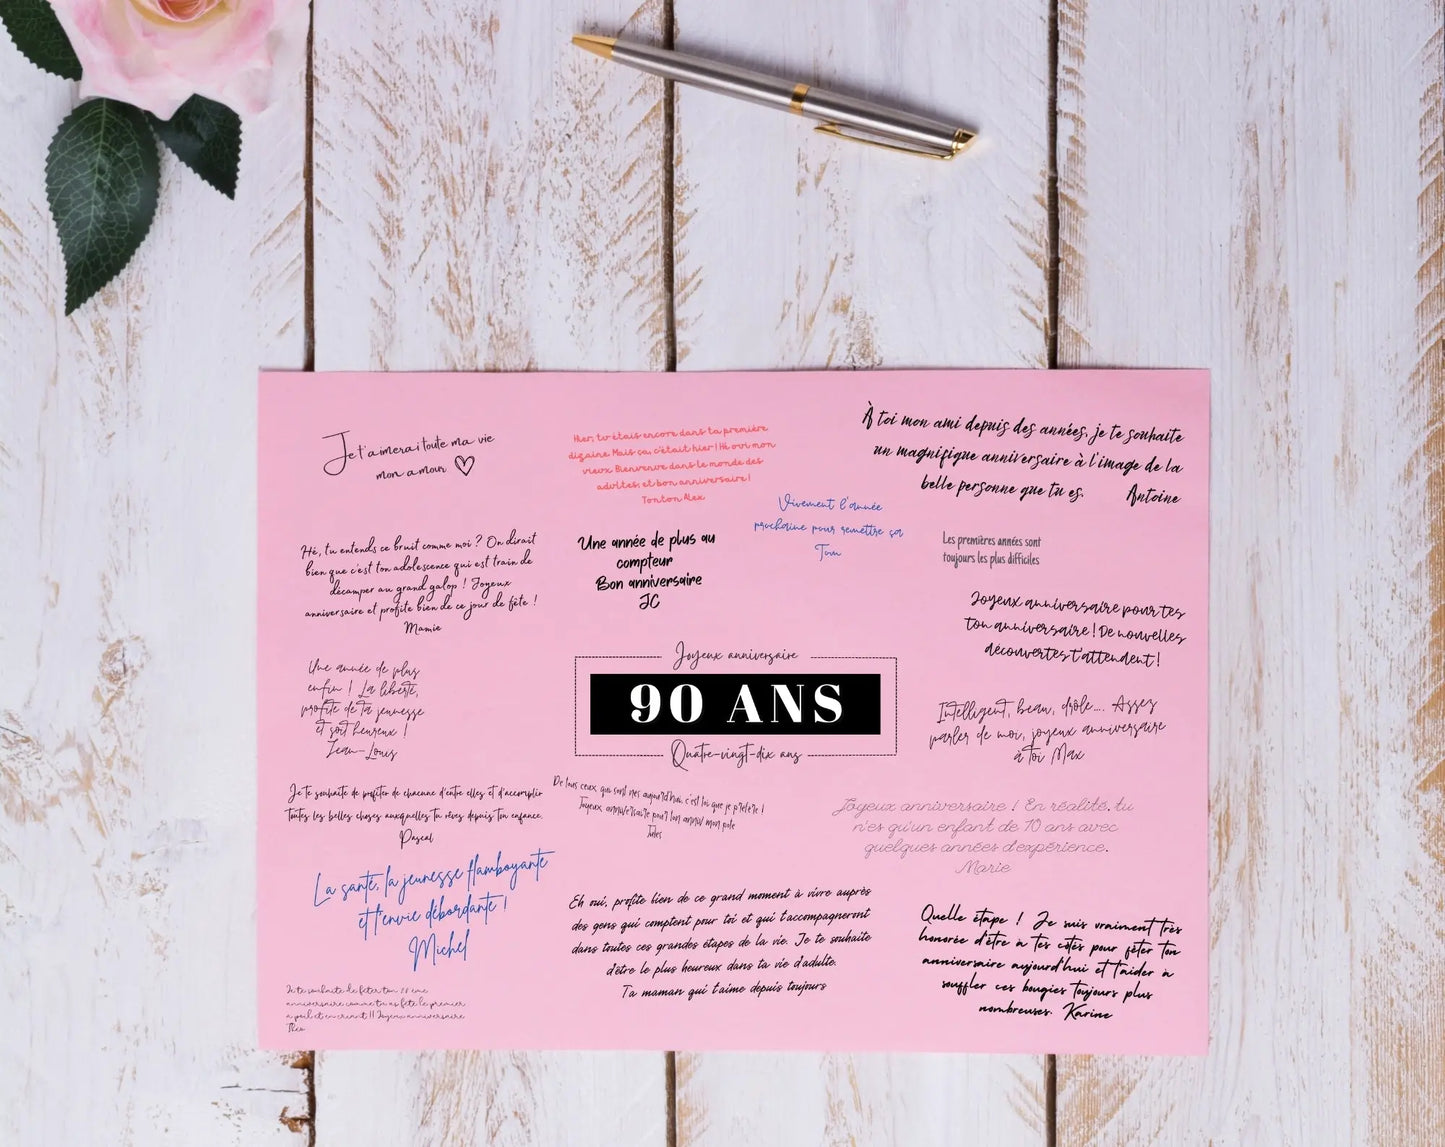 Je t'aimerai toute ma vie
mon amour
Hier, tu étais encore dans ta première
dizaine. Mais ça, c'était hier ! Hé oui mon
vieux. Bienvenue dans le monde des
adultes, et bon anniversaire !
Tonton Alex
À toi mon ami depuis des années, je te souhaite
un magnifique anniversaire à l'image de la
belle personne que tu es. Antoine
Vivement l'année
prochaine pour remettre ça
Tom
Hé, tu entends ce bruit comme moi ? On dirait
bien que c'est ton adolescence qui est train de
décamper au grand galop ! Joyeux
anniversaire et profite bien de ce jour de fête !
Mamie
Une année de plus au
compteur
Bon anniversaire
JC
Les premières années sont
toujours les plus difficiles
Joyeux anniversaire pour tes
ton anniversaire ! De nouvelles
découvertes t'attendent !
Une année de plus
enfin ! La liberté,
profite de ta jeunesse
et soit heureux !
Jean-Louis
Joyeux anniversaire
90 ANS
Quatre-vingt-dix ans
Intelligent, beau, drôle.... Assez
parler de moi, joyeux anniversaire
à toi Max
Je te souhaite de profiter de chacune d'entre elles et d'accomplir
toutes les belles choses auxquelles tu rêves depuis ton enfance.
Pascal
De tous ceux qui sont nés aujourd'hui, c'est toi que je préfère !
Joyeux anniversaire pour ton anniv mon pote
Jules
Joyeux anniversaire ! En réalité, tu
n'es qu'un enfant de 10 ans avec
quelques années d'expérience.
Marie
La santé, la jeunesse flamboyante
et l'envie débordante !
Michel
Eh oui, profite bien de ce grand moment à vivre auprès
des gens qui comptent pour toi et qui t'accompagneront
dans toutes ces grandes étapes de la vie. Je te souhaite
d'être le plus heureux dans ta vie d'adulte.
Ta maman qui t'aime depuis toujours
Quelle étape ! Je suis vraiment très
honorée d'être à tes côtés pour fêter ton
anniversaire aujourd'hui et t'aider à
souffler ces bougies toujours plus
nombreuses. Karine
Je te souhaite de fêter ton ème
anniversaire comme tu as fêté le premier
à poil et en criant !! Joyeux anniversaire
Théo